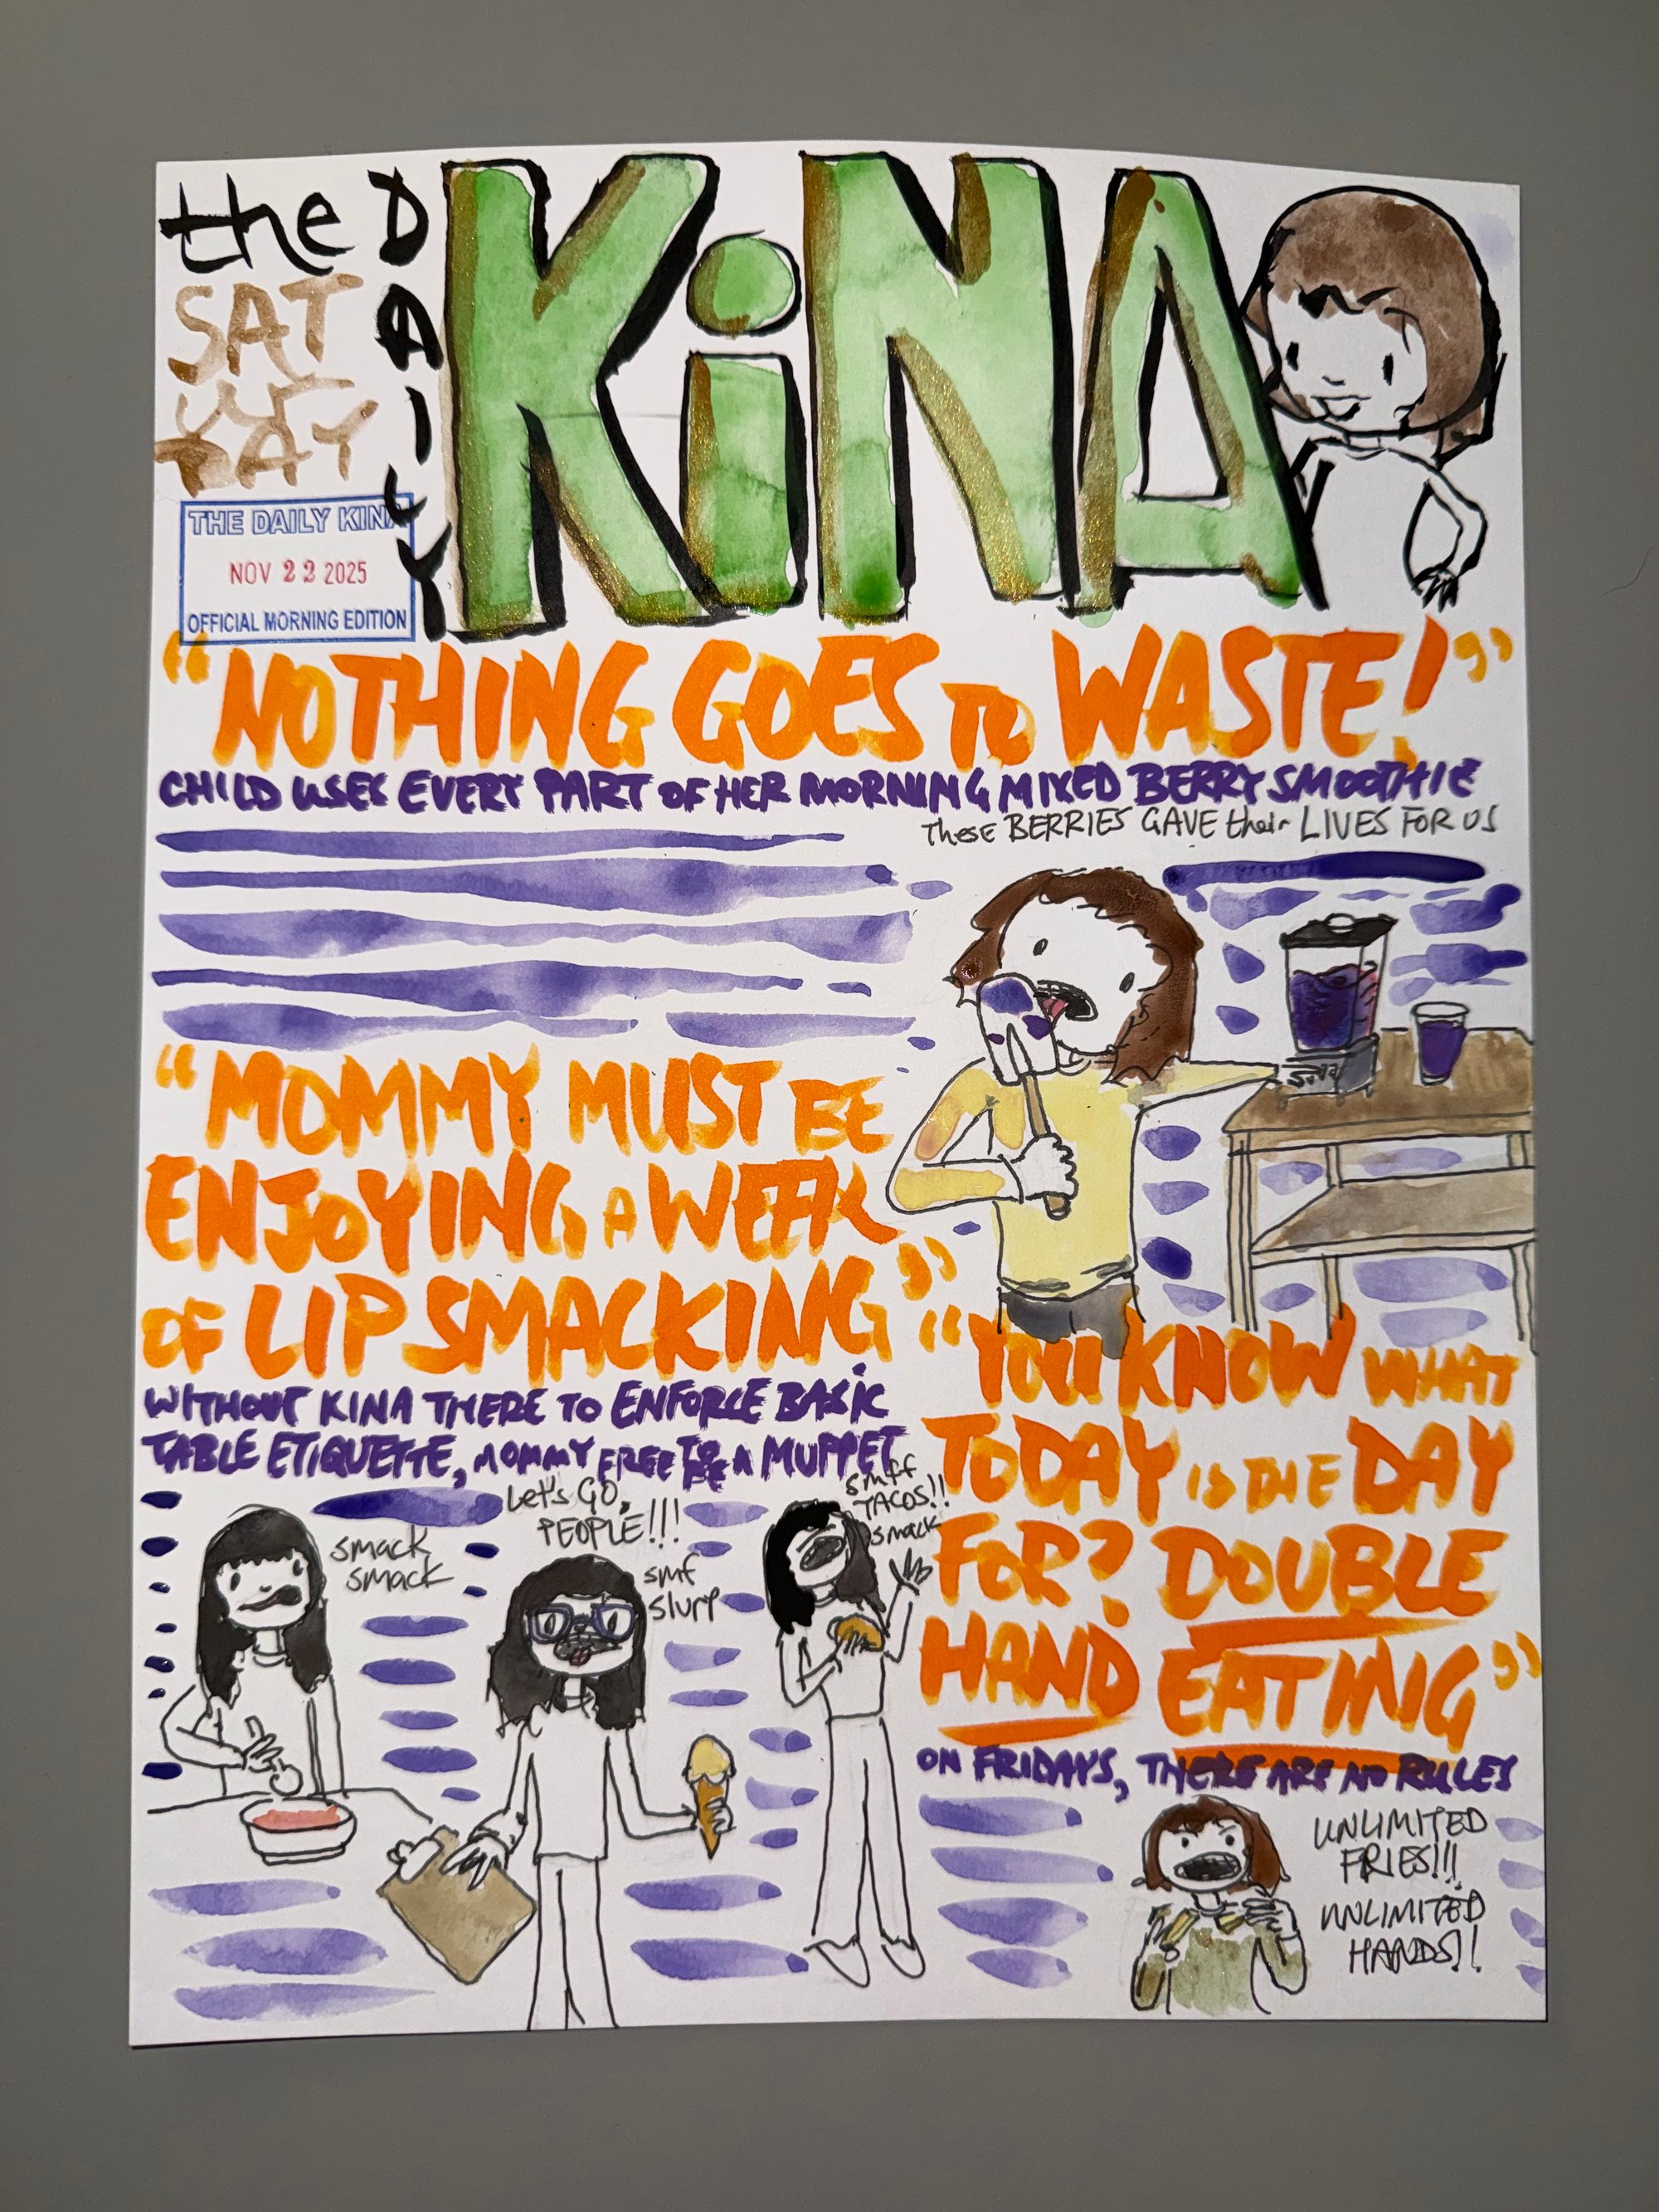 the
DAILY
KiNA
SAT
UR
DAY
THE DAILY KINA
NOV 22 2025
OFFICIAL MORNING EDITION
"NOTHING GOES TO WASTE!"
CHILD USES EVERY PART OF HER MORNING MIXED BERRY SMOOTHIE
THESE BERRIES GAVE their LIVES FOR US
"MOMMY MUST BE
ENJOYING A WEEK
OF LIP SMACKING"
WITHOUT KINA THERE TO ENFORCE BASIC
TABLE ETIQUETTE, MOMMY FREE TO BE A MUPPET
smack
smack
Let's GO,
PEOPLE!!!
smf
slurp
smff
TACOS!!
smack
"YOU KNOW WHAT
TODAY IS THE DAY
FOR? DOUBLE
HAND EATING"
ON FRIDAYS, THERE ARE NO RULES
UNLIMITED
FRIES!!!
UNLIMITED
HANDS!!